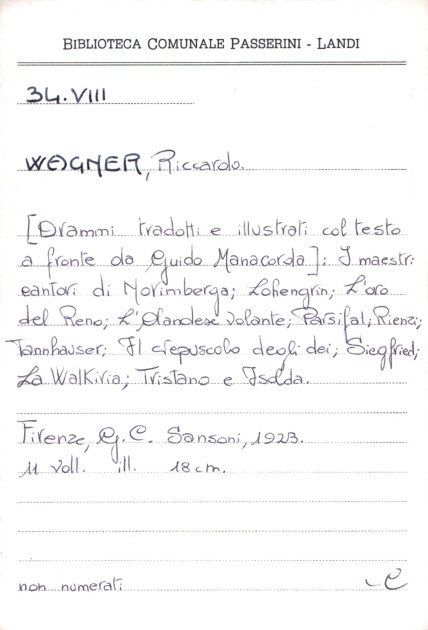 BIBLIOTECA COMUNALE PASSERINI - LANDI
34.VIII
WAGNER, Riccardo.
[Drammi tradotti e illustrati col testo
a fronte da Guido Manacorda]: I maestri
cantori di Norimberga; Lohengrin; L'oro
del Reno; L'Olandese volante; Parsifal; Rienzi;
Tannhauser; Il crepuscolo degli dei; Siegfried;
La Walkiria; Tristano e Isolda.
Firenze, G.C. Sansoni, 1923.
11 voll. ill. 18 cm.
non numerati